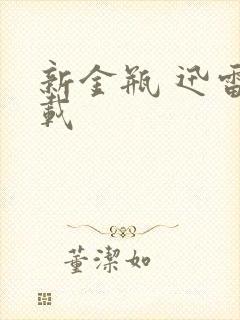 新金瓶 迅雷
载
董潔如